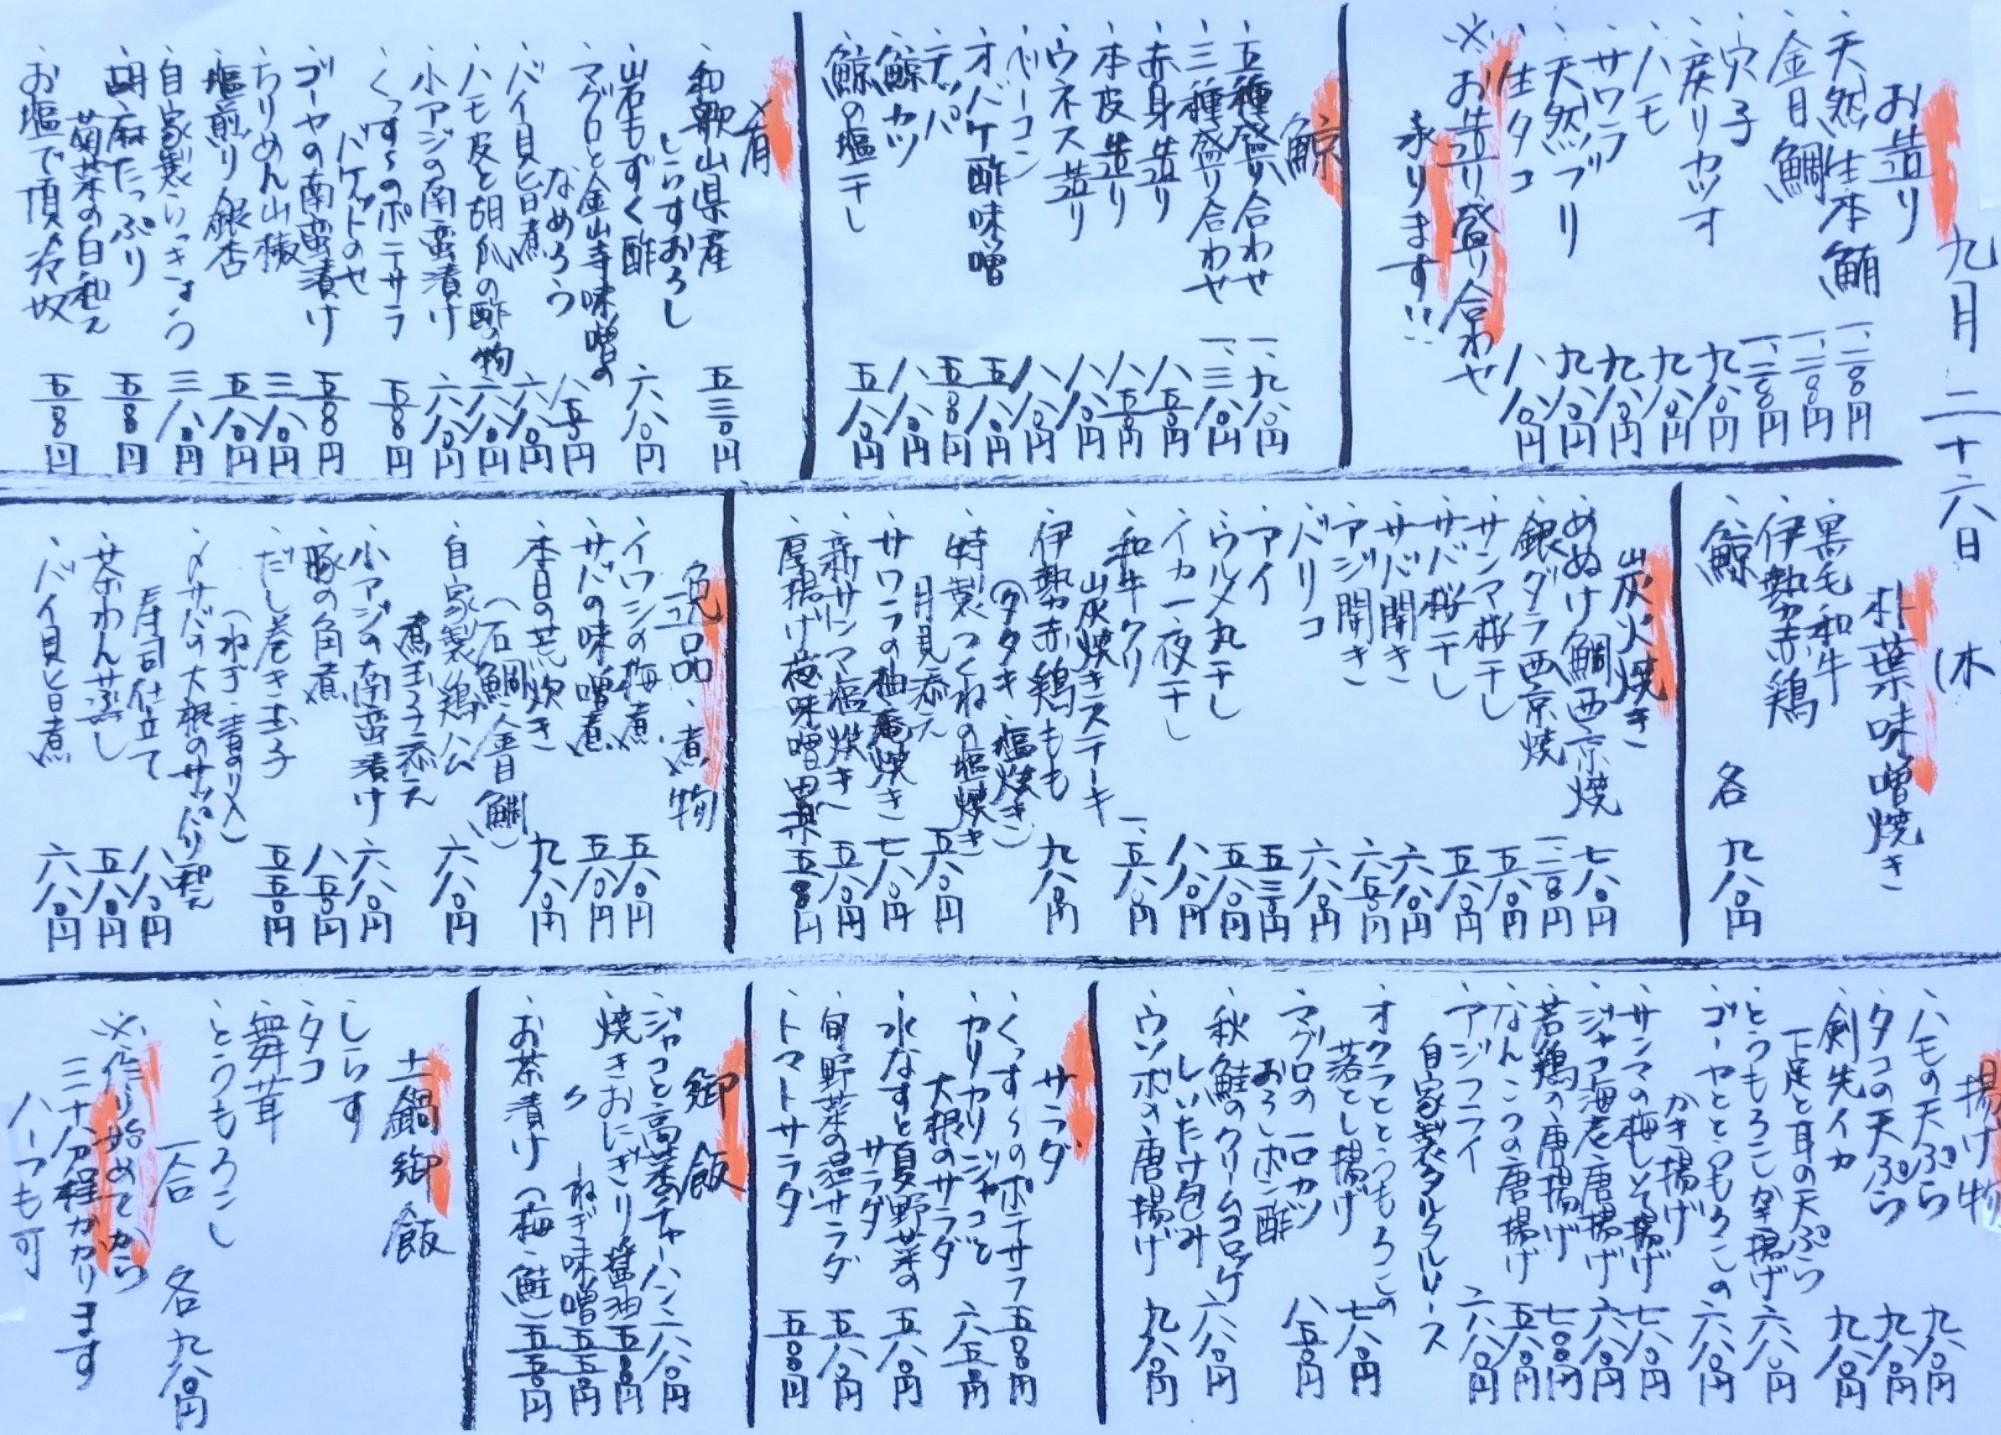 九月二十六日(木)
お造り
天然生本鮪 一、二〇〇円
金目鯛 一、二〇〇円
穴子 一、二〇〇円
戻りカツオ 九八〇円
ハモ 九八〇円
サワラ 九八〇円
天然ブリ 九八〇円
生タコ 八八〇円
※お造り盛り合わせ
承ります!!
鯨
五種盛り合わせ 一、九八〇円
三種盛り合わせ 一、三八〇円
赤身造り 八五〇円
本皮造り 八五〇円
ウネス造り 八八〇円
ベーコン 八八〇円
オバケ酢味噌 五八〇円
テッパ 五八〇円
鯨カツ 八八〇円
鯨の塩干し 五八〇円
肴
和歌山県産
しらすおろし 五三〇円
岩もずく酢 六八〇円
マグロと金山寺味噌の
なめろう 八五〇円
バイ貝旨煮 六八〇円
ハモ皮と胡瓜の酢の物 六八〇円
小アジの南蛮漬け 六八〇円
くっすーのポテサラ
バケットのせ 五八〇円
ゴーヤの南蛮漬け 五八〇円
ちりめん山椒 三八〇円
塩煎り銀杏 五八〇円
自家製らっきょう 三八〇円
胡麻たっぷり
菊菜の白和え 五八〇円
お塩で頂く冷奴 五八〇円
朴葉味噌焼き
黒毛和牛
伊勢赤鶏
鯨
各 九八〇円
炭火焼き
めぬけ鯛西京焼 七八〇円
銀ダラ西京焼 一、二〇〇円
サンマ桜干し 五八〇円
サバ桜干し 五八〇円
サバ開き 六八〇円
アジ開き 六五〇円
バリコ 六八〇円
アイ 五三〇円
ウルメ丸干し 五八〇円
イカ一夜干し 八八〇円
和牛クリ
炭焼きステーキ 一、五八〇円
伊勢赤鶏もも
(タタキ・塩焼き) 九八〇円
特製つくねの塩焼き
月見添え 五八〇円
サワラの柚庵焼き 七八〇円
新サンマ塩焼き 五八〇円
厚揚げ葱味噌田楽 五八〇円
逸品・煮物
イワシの梅煮 五八〇円
サバの味噌煮 五八〇円
本日の荒炊き
(石鯛・金目鯛) 九八〇円
自家製鶏ハム
煮玉子添え 六八〇円
小アジの南蛮漬け 六八〇円
豚の角煮 八五〇円
だし巻き玉子
(ねぎ・青のり入) 五五〇円
〆サバの大根のサッパリ和え
寿司仕立て 八八〇円
茶わん蒸し 五八〇円
バイ貝旨煮 六八〇円
揚げ物
ハモの天ぷら 九八〇円
タコの天ぷら 九八〇円
剣先イカ
下足と耳の天ぷら 九八〇円
とうもろこしかき揚げ 六八〇円
ゴーヤととうもろこしの
かき揚げ 六八〇円
サンマの梅しそ揚げ 七八〇円
ジャコ海老唐揚げ 六八〇円
若鶏の唐揚げ 七〇〇円
なんこつの唐揚げ 五八〇円
アジフライ
自家製タルタルソース 六八〇円
オクラととうもろこしの
落とし揚げ 七八〇円
マグロの一口カツ
おろしポン酢 八五〇円
秋鮭のクリームコロッケ
しいたけ包み 六八〇円
ウツボの唐揚げ 九八〇円
サラダ
くっすーのポテサラ 五〇〇円
カリカリジャコと
大根のサラダ 六五〇円
水なすと夏野菜の
サラダ 五八〇円
旬野菜の温サラダ 五八〇円
トマトサラダ 五〇〇円
御飯
ジャコと高菜のチャーハン 六八〇円
焼きおにぎり 醤油 五五〇円
〃 ねぎ味噌 五五〇円
お茶漬け(梅・鮭) 五五〇円
土鍋御飯
しらす
タコ
舞茸
とうもろこし
一合 各九八〇円
※作り始めてから
三十分程かかります
ハーフも可